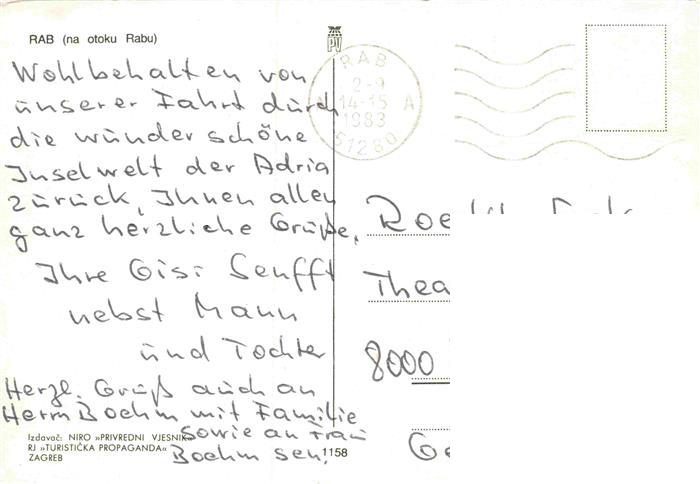 RAB (na otoku Rabu)
Wohlbehalten von
unserer Fahrt durch
die wunderschöne
Inselwelt der Adria
zurück, Ihnen allen
ganz herzliche Grüße,
Ihre Gisi Senfft
nebst Mann
und Tochter
Herzl. Grüß auch an
Herrn Boehm mit Familie
sowie an Frau
Boehm sen.
Izdavač: NIRO »PRIVREDNI VJESNIK«
RJ »TURISTIČKA PROPAGANDA«
ZAGREB
1158
PV
RAB
2-9
14-15 A
1983
51280
Roe
Thea
8000
Ge